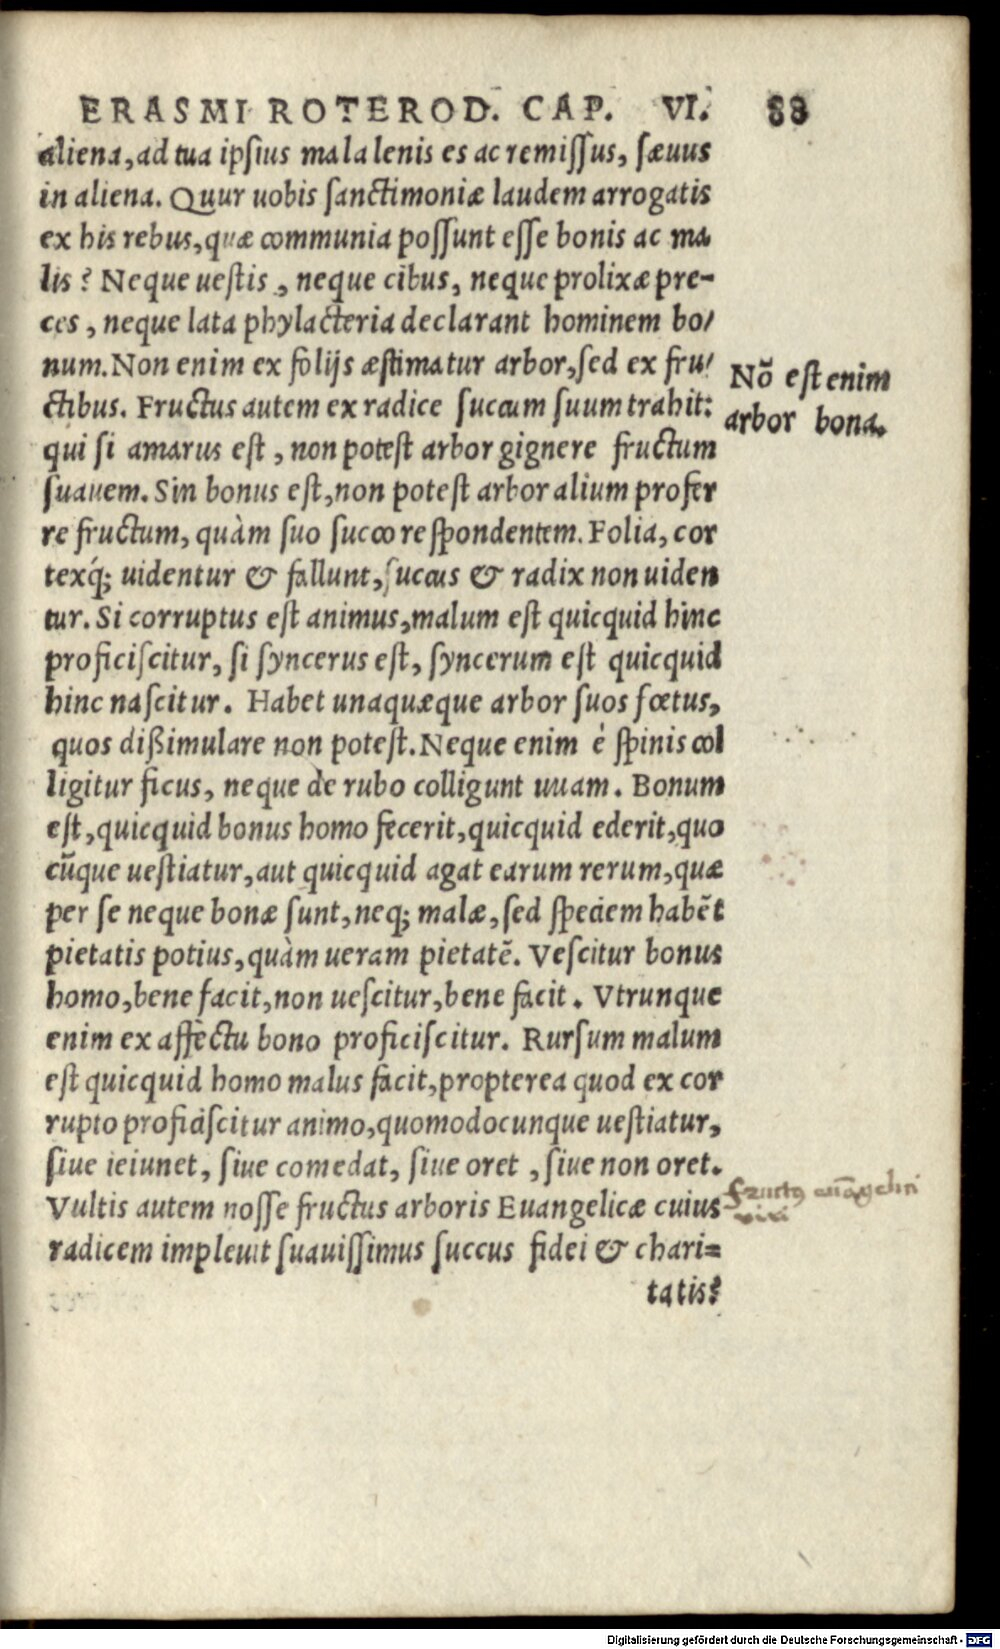 ERASMI ROTEROD. CAP. VI. 88
aliena, ad tua ipsius mala lenis es ac remissus, sæuus
in aliena. Quur uobis sanctimoniæ laudem arrogatis
ex his rebus, quæ communia possunt esse bonis ac ma
lis? Neque uestis, neque cibus, neque prolixæ pre-
ces, neque lata phylacteria declarant hominem bo/
num. Non enim ex folijs æstimatur arbor, sed ex fru/
ctibus. Fructus autem ex radice succum suum trahit:
qui si amarus est, non potest arbor gignere fructum
suauem. Sin bonus est, non potest arbor alium profer
re fructum, quàm suo succo respondentem. Folia, cor
texq́; uidentur & fallunt, succus & radix non uiden
tur. Si corruptus est animus, malum est quicquid hinc
proficiscitur, si syncerus est, syncerum est quicquid
hinc nascitur. Habet unaquæque arbor suos fœtus,
quos dißimulare non potest. Neque enim è spinis col
ligitur ficus, neque de rubo colligunt uuam. Bonum
est, quicquid bonus homo fecerit, quicquid ederit, quo
cūque uestiatur, aut quicquid agat earum rerum, quæ
per se neque bonæ sunt, neq; malæ, sed speciem habēt
pietatis potius, quàm ueram pietatē. Vescitur bonus
homo, bene facit, non uescitur, bene facit. Vtrunque
enim ex affectu bono proficiscitur. Rursum malum
est quicquid homo malus facit, propterea quod ex cor
rupto proficiscitur animo, quomodocunque uestiatur,
siue ieiunet, siue comedat, siue oret, siue non oret.
Vultis autem nosse fructus arboris Euangelicæ cuius
radicem impleuit suauissimus succus fidei & chari=
tatis?
Nō est enim
arbor bona.
viri
Digitalisierung gefördert durch die Deutsche Forschungsgemeinschaft - DFG